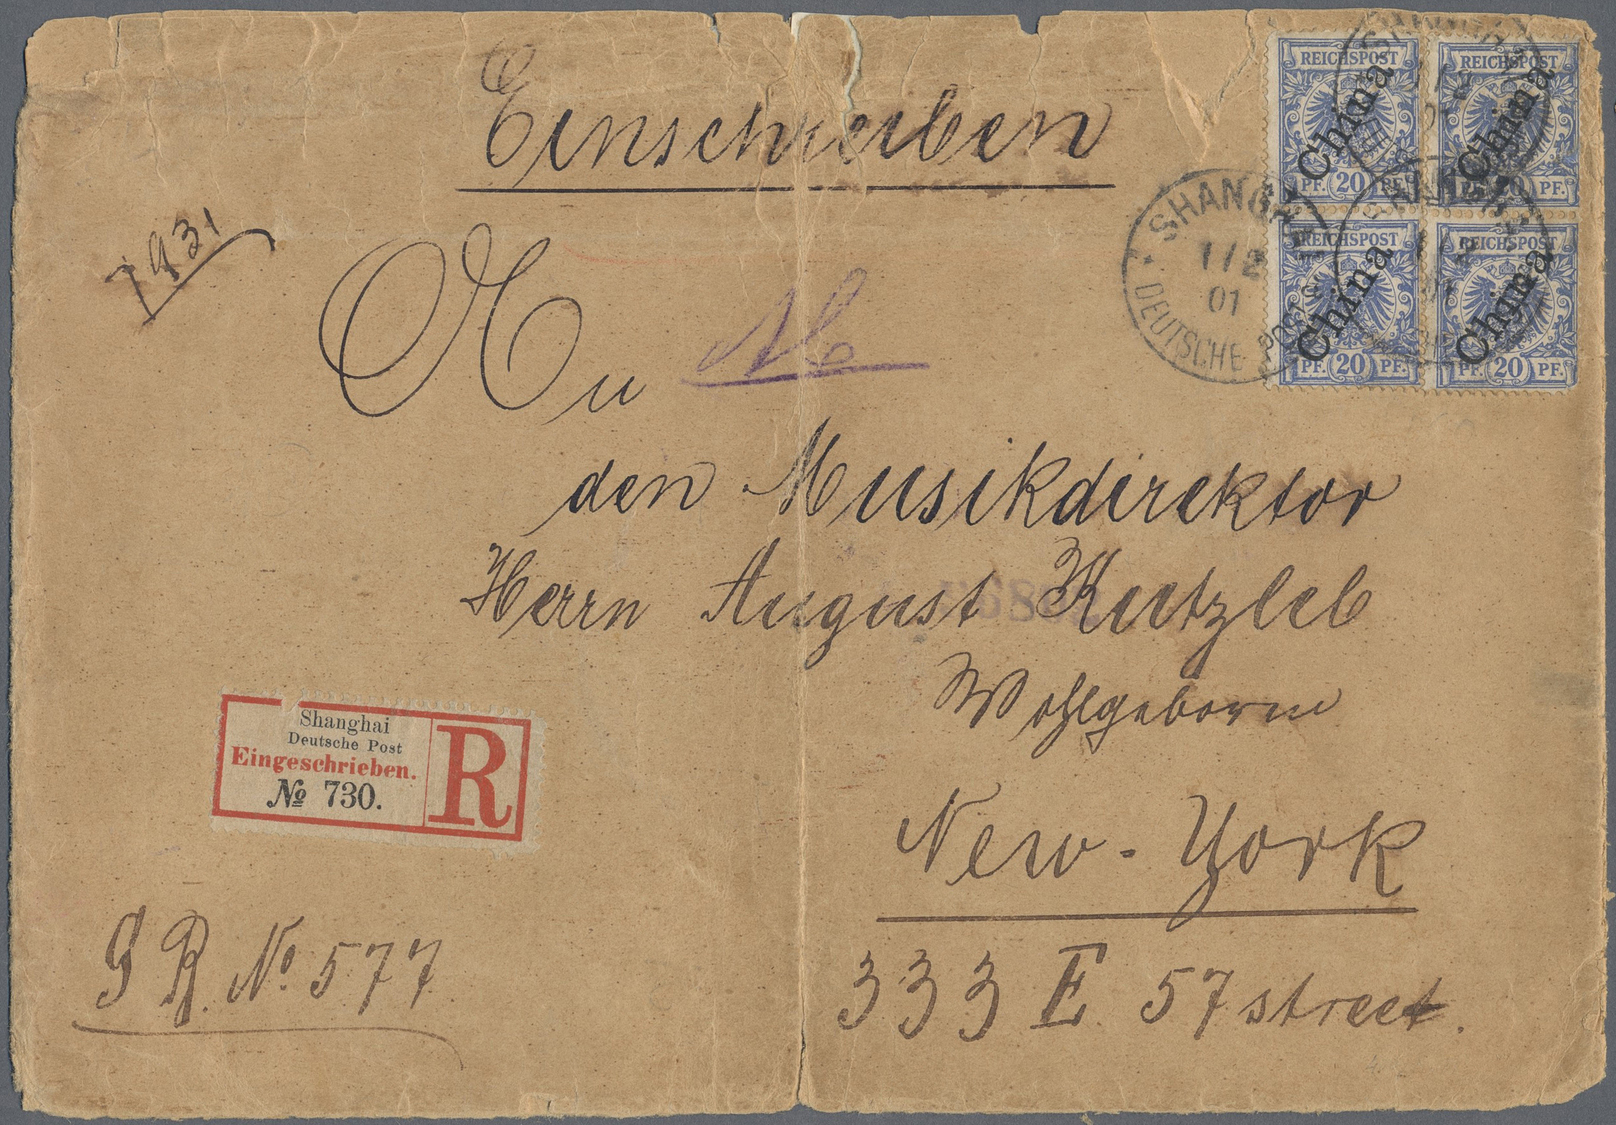 Einschreiben
REICHSPOST China PF. 20 PF.
REICHSPOST China PF. 20 PF.
REICHSPOST China PF. 20 PF.
REICHSPOST China PF. 20 PF.
SHANGHAI
1/2
01
DEUTSCHE POST
7931
An
den Musikdirektor
Herrn August Kutzleb
Wohlgeboren
Shanghai
Deutsche Post
Eingeschrieben.
№ 730.
R
New-York
R. No. 577
333 E. 57 street.